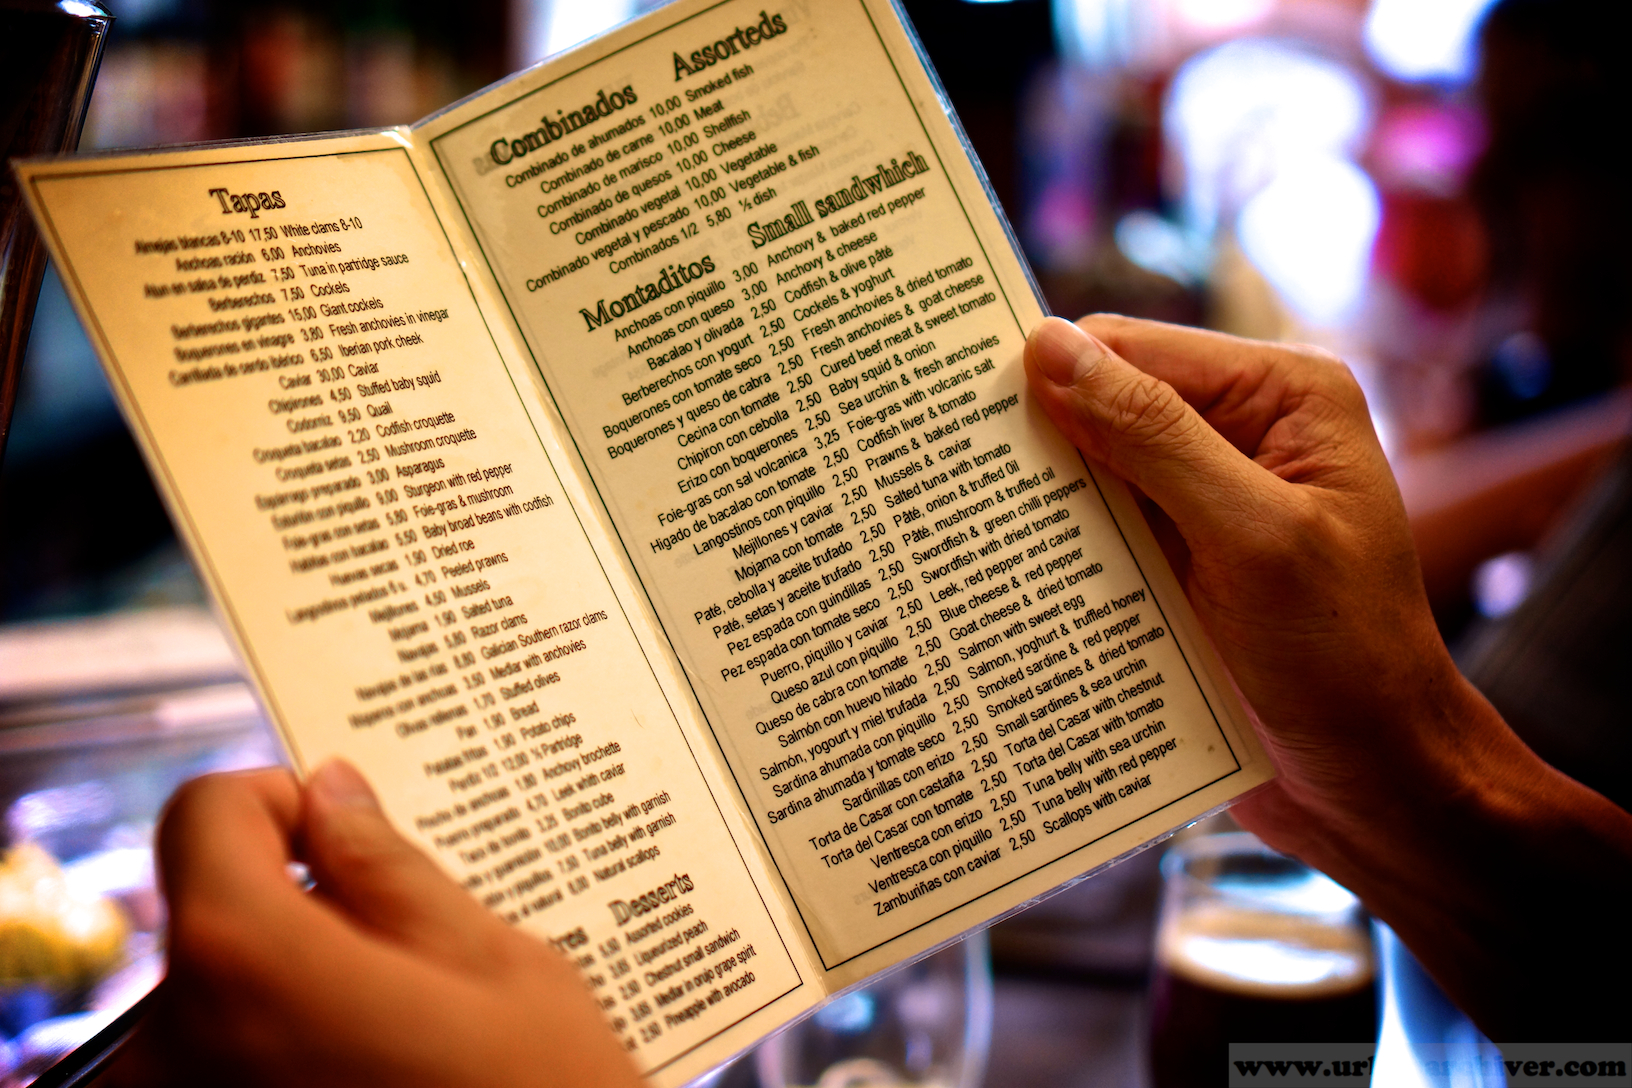 Tapas
Almejas blancas 8-10 17,50 White clams 8-10
Anchoas ración 6,00 Anchovies
Atun en salsa de perdiz 7,50 Tuna in partridge sauce
Berberechos 7,50 Cockels
Berberechos gigantes 15,00 Giant cockels
Boquerones en vinagre 3,80 Fresh anchovies in vinegar
Carrillada de cerdo ibérico 6,50 Iberian pork cheek
Caviar 30,00 Caviar
Chipirones 4,50 Stuffed baby squid
Codorniz 9,50 Quail
Croqueta bacalao 2,20 Codfish croquette
Croqueta setas 2,50 Mushroom croquette
Espárrago preparado 3,00 Asparagus
Esturión con piquillo 9,00 Sturgeon with red pepper
Foie-gras con setas 5,80 Foie-gras & mushroom
Habitas con bacalao 5,50 Baby broad beans with codfish
Huevas secas 1,90 Dried roe
Langostinos pelados 6 u. 4,70 Peeled prawns
Mejillones 4,50 Mussels
Mojama 1,90 Salted tuna
Navajas 5,80 Razor clams
Navajas de las rías 8,80 Galician Southern razor clams
Mojama con anchoas 3,50 Medlar with anchovies
Olivas rellenas 1,70 Stuffed olives
Pan 1,90 Bread
Patatas fritas 1,90 Potato chips
Perdiz 1/2 12,00 ½ Partridge
Pincho de anchoas 1,80 Anchovy brochette
Puerro preparado 4,70 Leek whith caviar
Taco de bonito 3,25 Bonito cube
y guarnición 10,00 Bonito belly with garnish
y piquillos 7,50 Tuna belly with garnish
al natural 6,00 Natural scallops
tres Desserts
5,50 Assorted cookies
3,85 Liqueurized peach
2,50 Chestnut small sandwich
3,85 Medlar in orujo grape spirit
2,50 Pineapple with avocado
Combinados Assorteds
Combinado de ahumados 10,00 Smoked fish
Combinado de carne 10,00 Meat
Combinado de marisco 10,00 Shellfish
Combinado de quesos 10,00 Cheese
Combinado vegetal 10,00 Vegetable
Combinado vegetal y pescado 10,00 Vegetable & fish
Combinados 1/2 5,80 ½ dish
Montaditos Small sandwhich
Anchoas con piquillo 3,00 Anchovy & baked red pepper
Anchoas con queso 3,00 Anchovy & cheese
Bacalao y olivada 2,50 Codfish & olive pâté
Berberechos con yogurt 2,50 Cockels & yoghurt
Boquerones con tomate seco 2,50 Fresh anchovies & dried tomato
Boquerones y queso de cabra 2,50 Fresh anchovies & goat cheese
Cecina con tomate 2,50 Cured beef meat & sweet tomato
Chipiron con cebolla 2,50 Baby squid & onion
Erizo con boquerones 2,50 Sea urchin & fresh anchovies
Foie-gras con sal volcanica 3,25 Foie-gras with volcanic salt
Higado de bacalao con tomate 2,50 Codfish liver & tomato
Langostinos con piquillo 2,50 Prawns & baked red pepper
Mejillones y caviar 2,50 Mussels & caviar
Mojama con tomate 2,50 Salted tuna with tomato
Paté, cebolla y aceite trufado 2,50 Pâté, onion & truffed Oil
Paté, setas y aceite trufado 2,50 Pâté, mushroom & truffed oil
Pez espada con guindillas 2,50 Swordfish & green chilli peppers
Pez espada con tomate seco 2,50 Swordfish with dried tomato
Puerro, piquillo y caviar 2,50 Leek, red pepper and caviar
Queso azul con piquillo 2,50 Blue cheese & red pepper
Queso de cabra con tomate 2,50 Goat cheese & dried tomato
Salmón con huevo hilado 2,50 Salmon with sweet egg
Salmón, yogourt y miel trufada 2,50 Salmon, yoghurt & truffled honey
Sardina ahumada con piquillo 2,50 Smoked sardine & red pepper
Sardina ahumada y tomate seco 2,50 Smoked sardines & dried tomato
Sardinillas con erizo 2,50 Small sardines & sea urchin
Torta de Casar con castaña 2,50 Torta del Casar with chestnut
Torta del Casar con tomate 2,50 Torta del Casar with tomato
Ventresca con erizo 2,50 Tuna belly with sea urchin
Ventresca con piquillo 2,50 Tuna belly with red pepper
Zamburiñas con caviar 2,50 Scallops with caviar